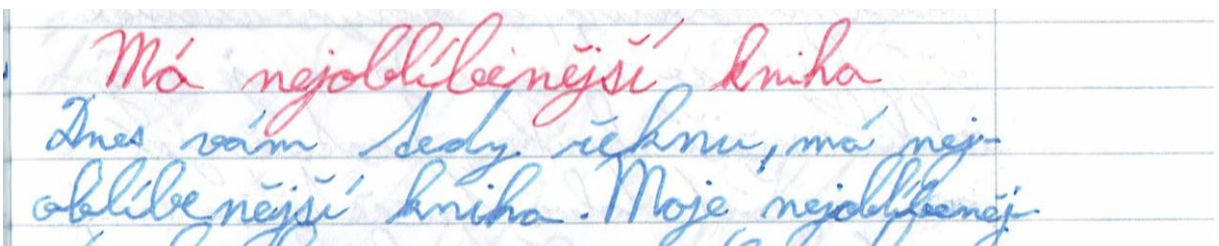 Má nejoblíbenější kniha
Dnes vám tedy řeknu, má nej-
oblíbenější kniha. Moje nejoblíbeněj-